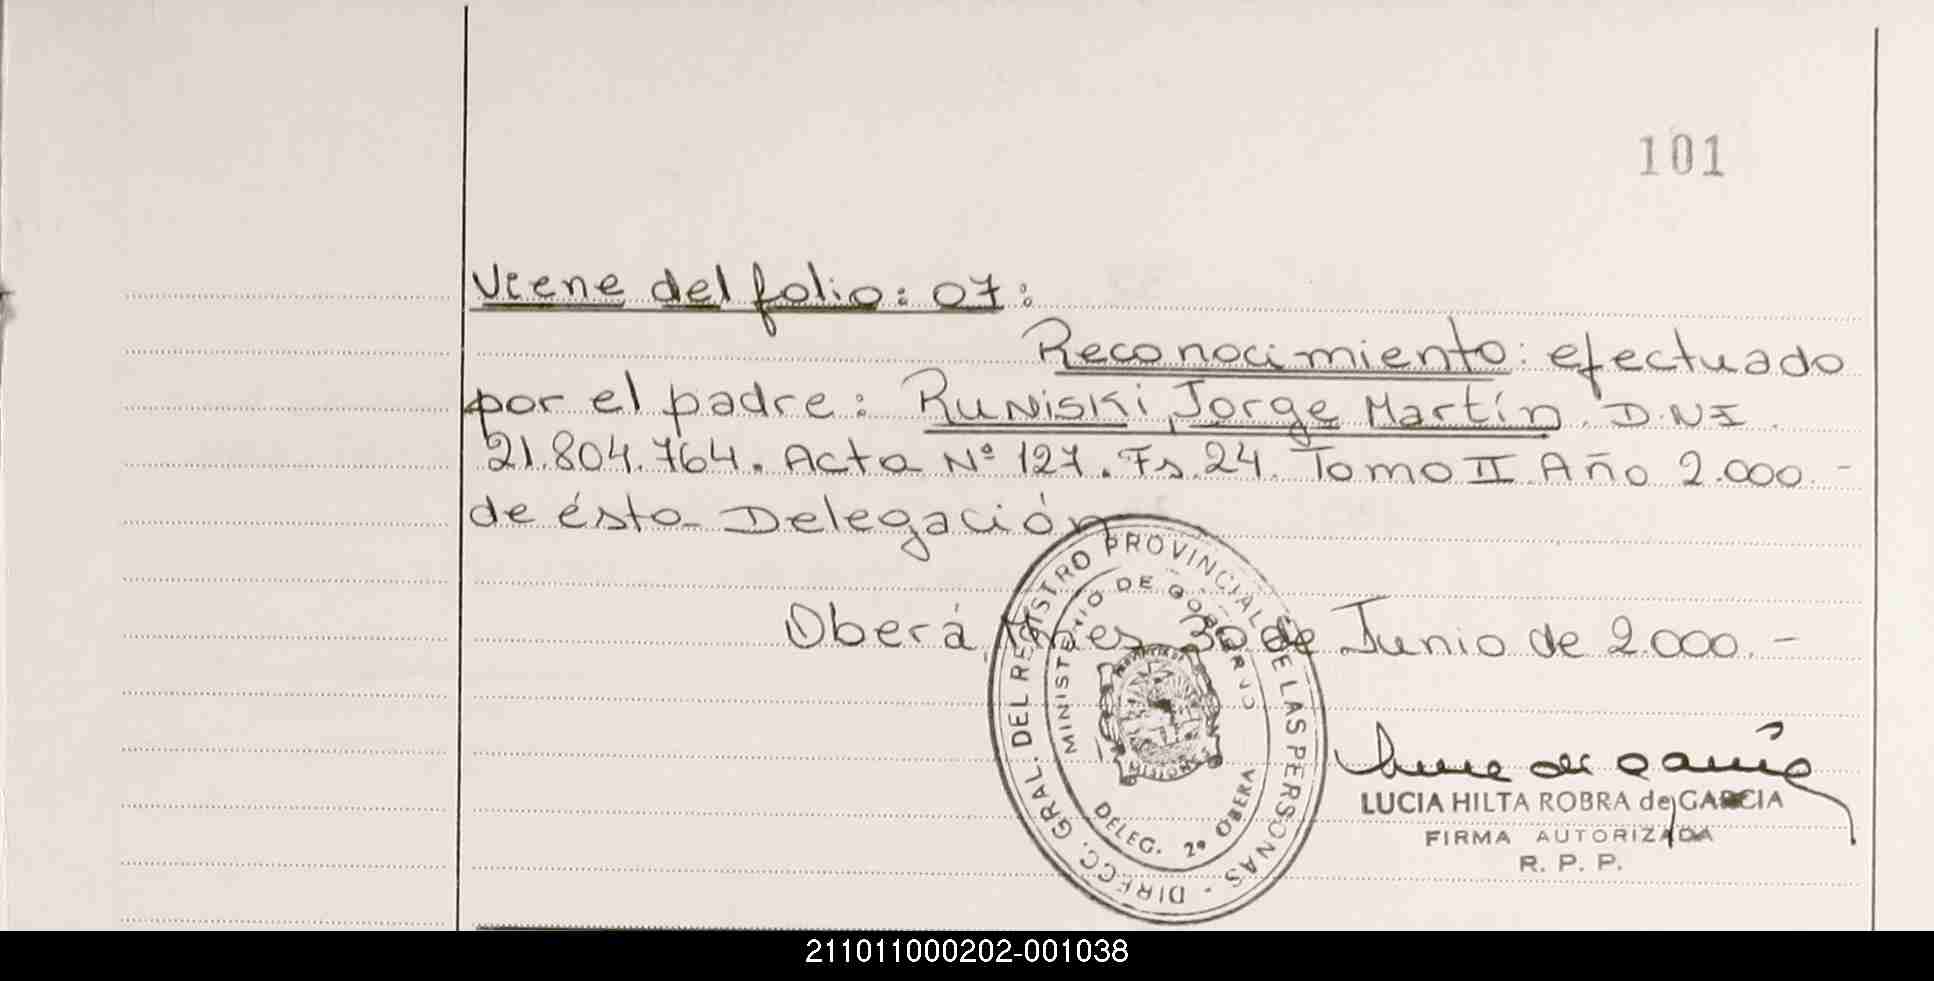 101
Viene del folio: 07:
Reconocimiento: efectuado
por el padre: Runiski, Jorge Martín. D.N.I.
21.804.764. Acta Nº 127. Fs. 24. Tomo II Año 2.000.-
de ésta Delegación
Oberá, Mnes, 30 de Junio de 2.000.-
DIRECC. GRAL. DEL REGISTRO PROVINCIAL DE LAS PERSONAS -
MINISTERIO DE GOBIERNO
PROVINCIA DE
MISIONES
DELEG. 2º OBERA
LUCIA HILTA ROBRA de GARCIA
FIRMA AUTORIZADA
R. P. P.
211011000202-001038